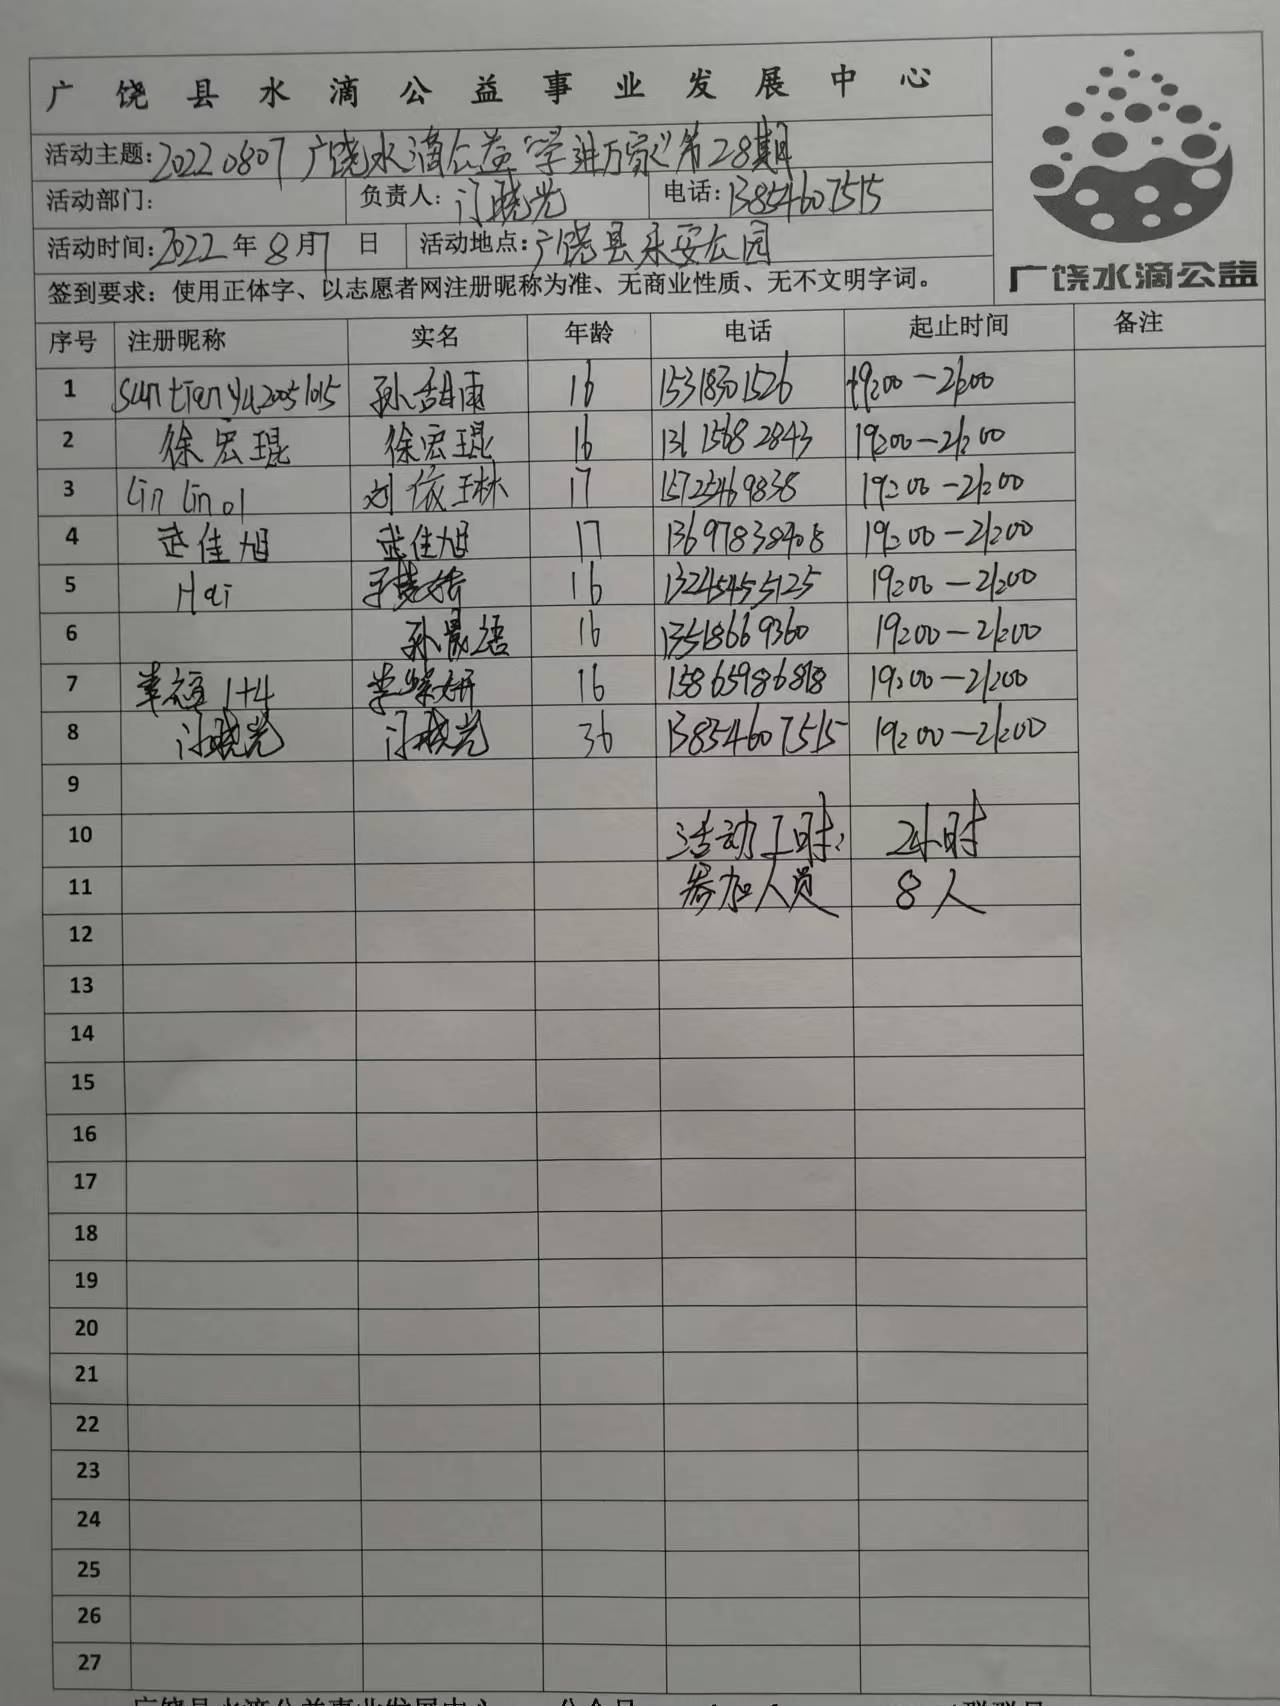 广饶县水滴公益事业发展中心
活动主题：20220807广饶水滴公益“学进万家”第28期
活动部门： 负责人：门晓光 电话：13854607515
活动时间：2022年8月7日 活动地点：广饶县永安公园
签到要求：使用正体字、以志愿者网注册昵称为准、无商业性质、无不文明字词。
广饶水滴公益
序号 注册昵称 实名 年龄 电话 起止时间 备注
1 suntianyu20051015 孙甜雨 16 15318301526 19:00—21:00
2 徐宏琨 徐宏琨 16 13115682843 19:00—21:00
3 Lin Lin 01 刘依琳 17 15725469838 19:00—21:00
4 武佳旭 武佳旭 17 13697838408 19:00—21:00
5 Hai 16 13245455125 19:00—21:00
6 孙晨语 16 13518669360 19:00—21:00
7 幸福1+4 16 15865986818 19:00—21:00
8 门晓光 门晓光 36 13854607515 19:00—21:00
9
10 活动工时： 2小时
11 参加人员 8人
12
13
14
15
16
17
18
19
20
21
22
23
24
25
26
27
广饶县水滴公益事业发展中心